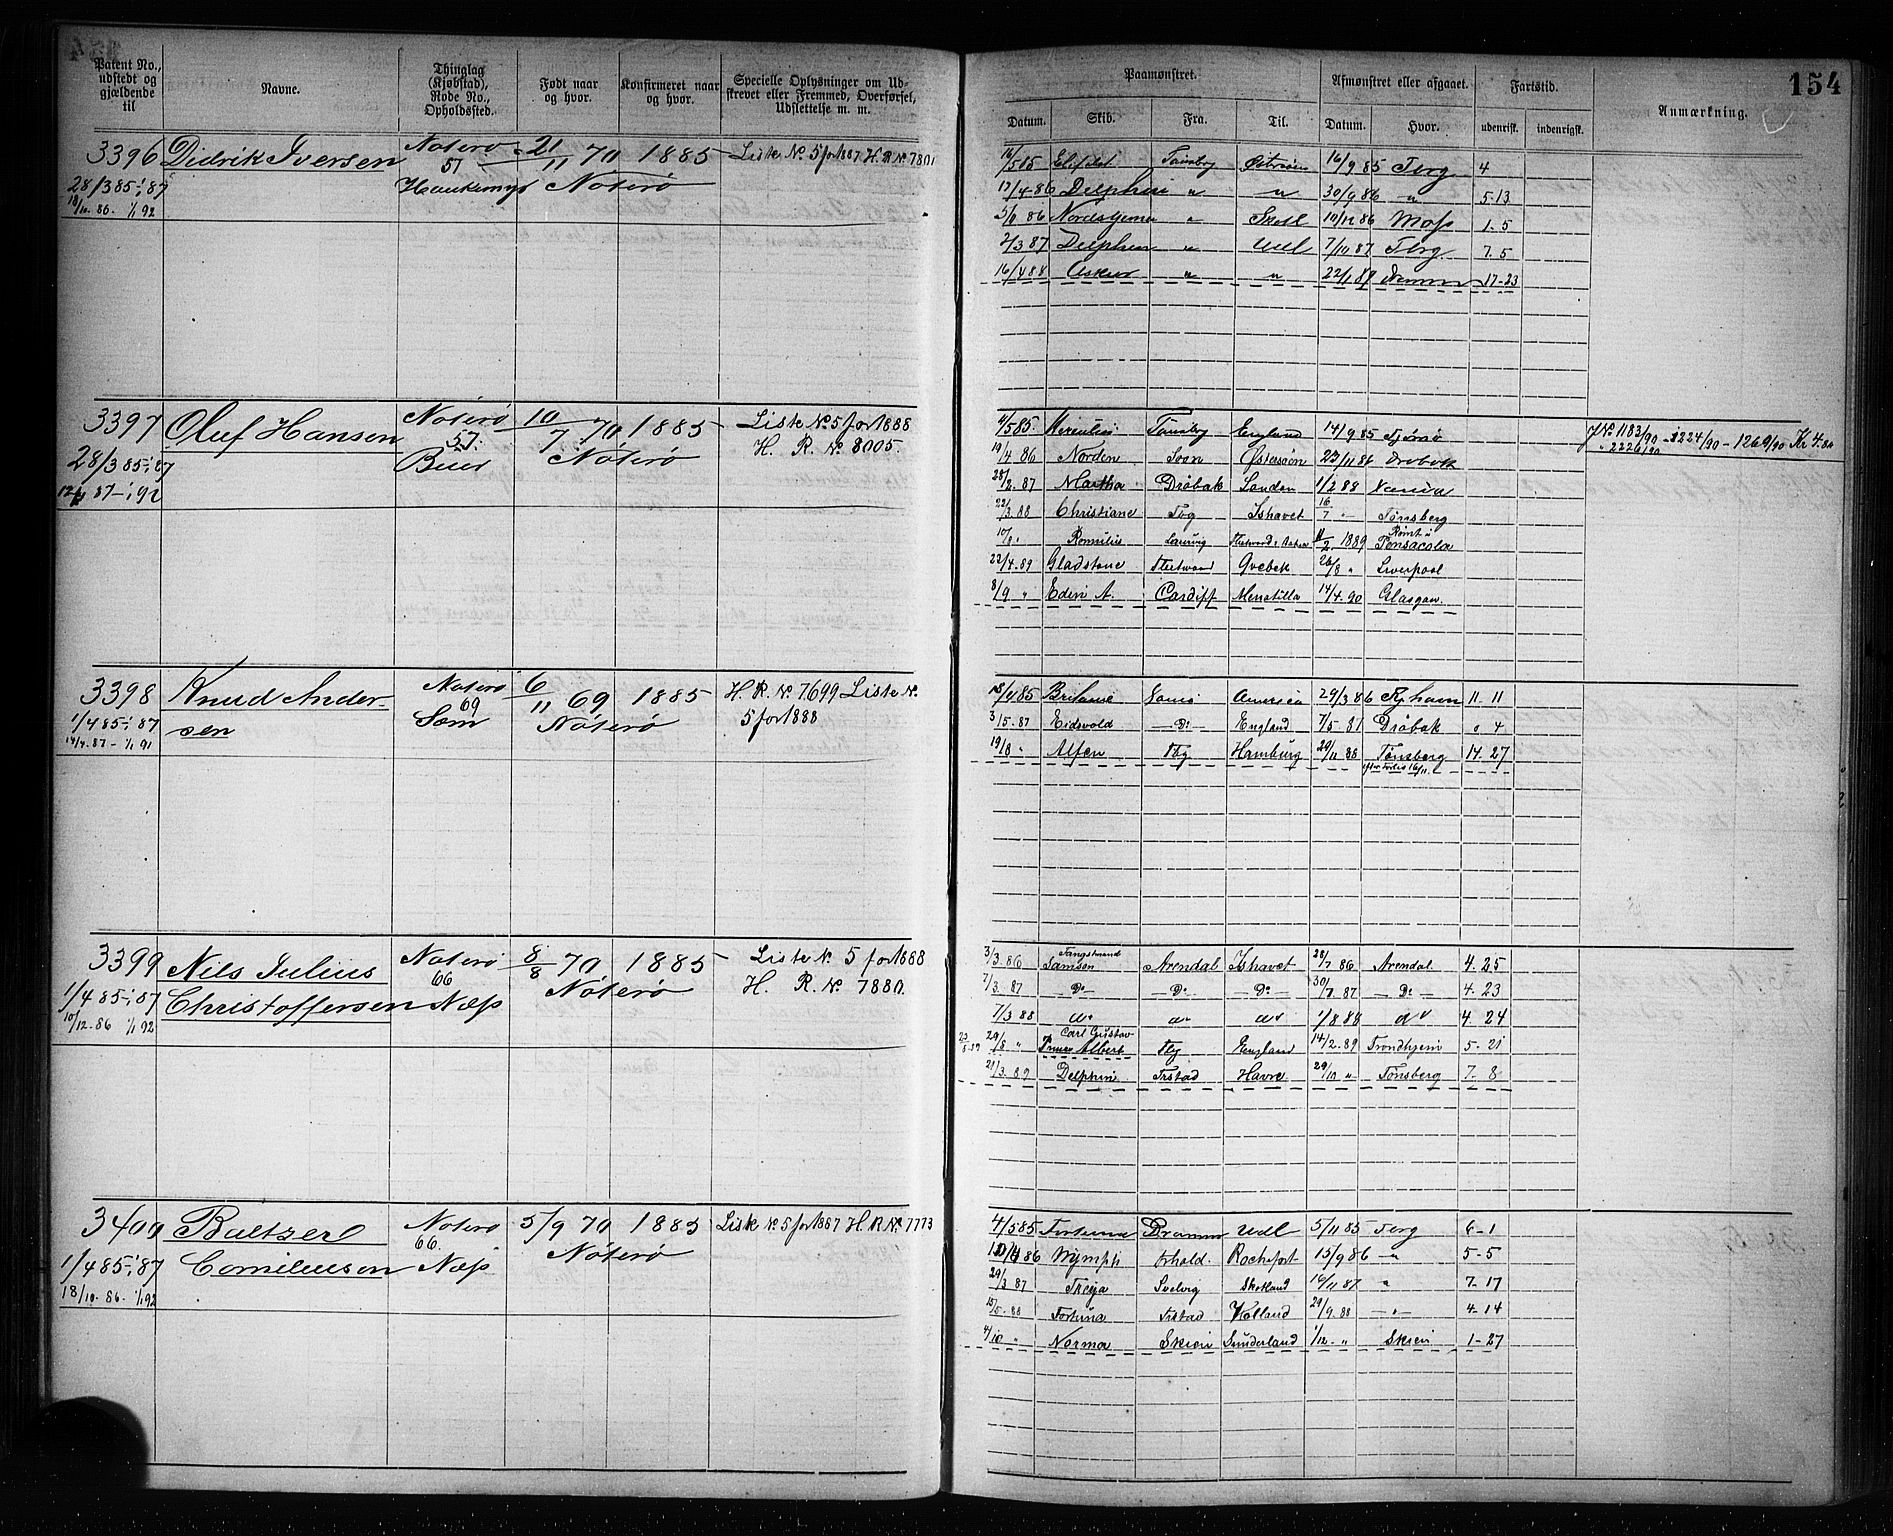 154
Patent No., udstedt og gjældende til
Navne.
Thinglag (Kjøbstad), Rode No., Opholdssted.
Født naar og hvor.
Konfirmeret naar og hvor.
Specielle Oplysninger om Udskrevet eller Fremmed, Overførsel, Udslettelse m. m.
Paamønstret.
Afmønstret eller afgaaet.
Fartstid.
Anmærkning.
Datum. Skib. Fra. Til. Datum. Hvor. udenrisk. indenrigsk.
3396 Didrik Iversen Nøterø 21/11 70 1885 Liste No 5 for 1887 H. R. No 7801
57
28/3 85 - 1/1 87 Nøterø
18/10 86. 1/1 92
16/5 85 Tønsbg Østersøen 16/9 85 Tbrg 4
13/4-86 Delphin " " 30/9 86 " 5-13
86 Nordstjernen " Skotl 10/12 86 Moss 1. 5
2/3 87 Delphin " Udl 7/10 87 Tbrg 7. 5
16/4 88 " " 22/11 89 Dramm 17-23
3397 Oluf Hansen Nøterø 10/7 70 1885 Liste No 5 for 1888
57. H. R. No 8005.
28/3 85 - 1/1 87 Nøterø
87 - 1/1 92
11/5 85 Herculus Tønsbg England 14/9 85 Tjømø J No 1183/90 - 1224/90 - 1269/90 Kr 4.80
" 2226/90
19/4 86 Norden Soon Østersøen 23/11 86 Drøbak
28/2. 87 Martha Drøbak London 1/2 88
22/3 88 Christiane Tbg Ishavet 16/7 " Tønsberg
10/8 " Romulus Laurvig 11/2 1889 Rømt i Pensacola
22/4. 89 Gladstone Fleetwood Qvebek 26/8 " Liverpool
8/9 " Eden A. Cardiff 14/4. 90 Glasgow.
3398 Knud Andersen Nøterø 6/11 69 1885 H. R. No 7699 Liste No
69 5 for 1888
1/4 85 - 1/1 87 Sem Nøterø
14/4. 87 - 1/1 91
85 America 29/3 86 11. 11
3/5. 87 Eidsvold - Do England 7/5 81 Drøbak " 4
19/8 " Alfen Tbg Hamburg 29/11 88 Tønsberg 14. 27
3399 Nils Julius Christoffersen Nøterø 8/8 70 1885 Liste No 5 for 1888
66 H. R. No 7880.
1/4 85 - 1/1 87 Næs Nøterø
10/12. 86 1/1 92
3/3. 86 Fangstmand Samson Arendal Ishavet 28/7 86 Arendal. 4. 25
7/3. 87 - Do - - Do - Do 30/7 87 - Do - 4. 23
7/3 88 do do do 1/8 88 do 4. 24
29/8 " Carl Gustav Albert Tbg England 14/2. 89 Trondhjem 5. 21
21/3. 89 Delphin Frstad Havre 29/10 " Tønsberg 7. 8
3400 Baltzer Corneliusen Nøterø 5/9 70 1885 Liste No 5 for 1887 H. R. No 7773
66.
1/4 85 - 1/1 87 Næs Nøterø
18/10. 86. 1/1 92
4/5 85 Fortuna Dramm Udl 5/11 85 Tbrg 6-1
86 Nymph Frhald. Rochefort 15/9 86 " 5-5
29/3 87 Freya Svelvig Skotland 87 " 7. 17
15/5. 88 Fortuna Frstad Holland 29/9 88 - " - 4. 14
4/10 " Norma Skien Sunderland 1/12. " Skien 1-27